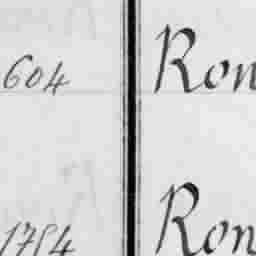 604 Ron
1754 Ron